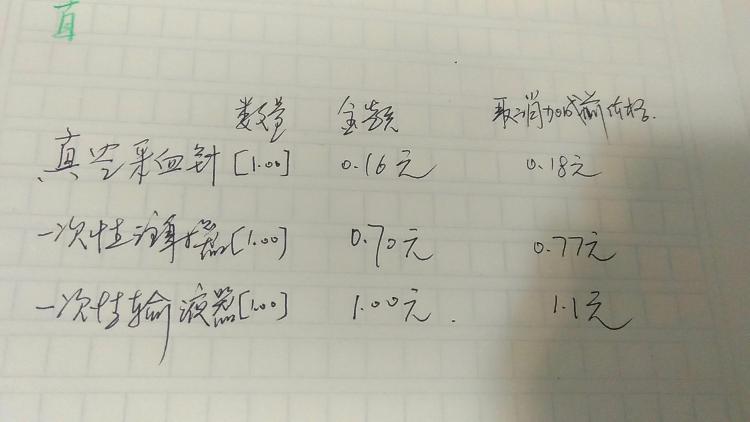 直
数量 金额 取消加成前价格.
真空采血针[1.00] 0.16元 0.18元
一次性注射器[1.00] 0.70元 0.77元
一次性输液器[1.00] 1.00元. 1.1元